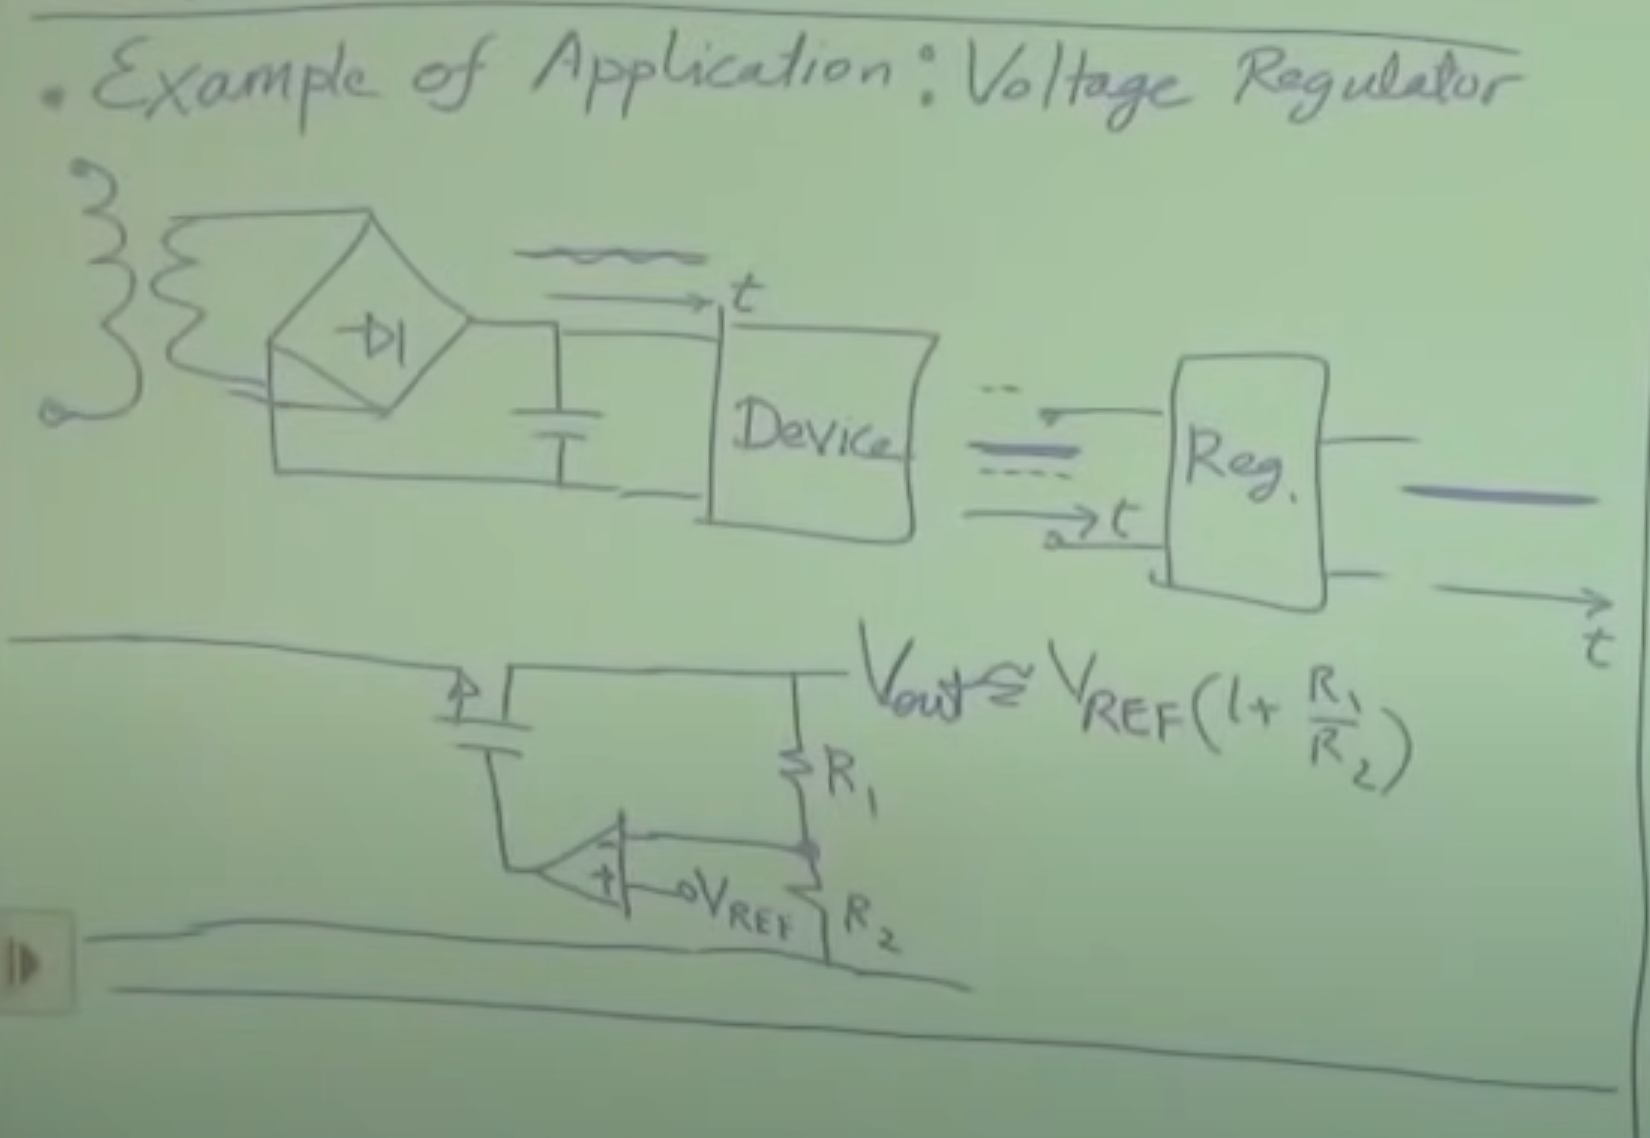 • Example of Application: Voltage Regulator
t
Device
t
Reg.
t
Vout ≈ VREF (1 + R1/R2)
R1
-
+
VREF
R2